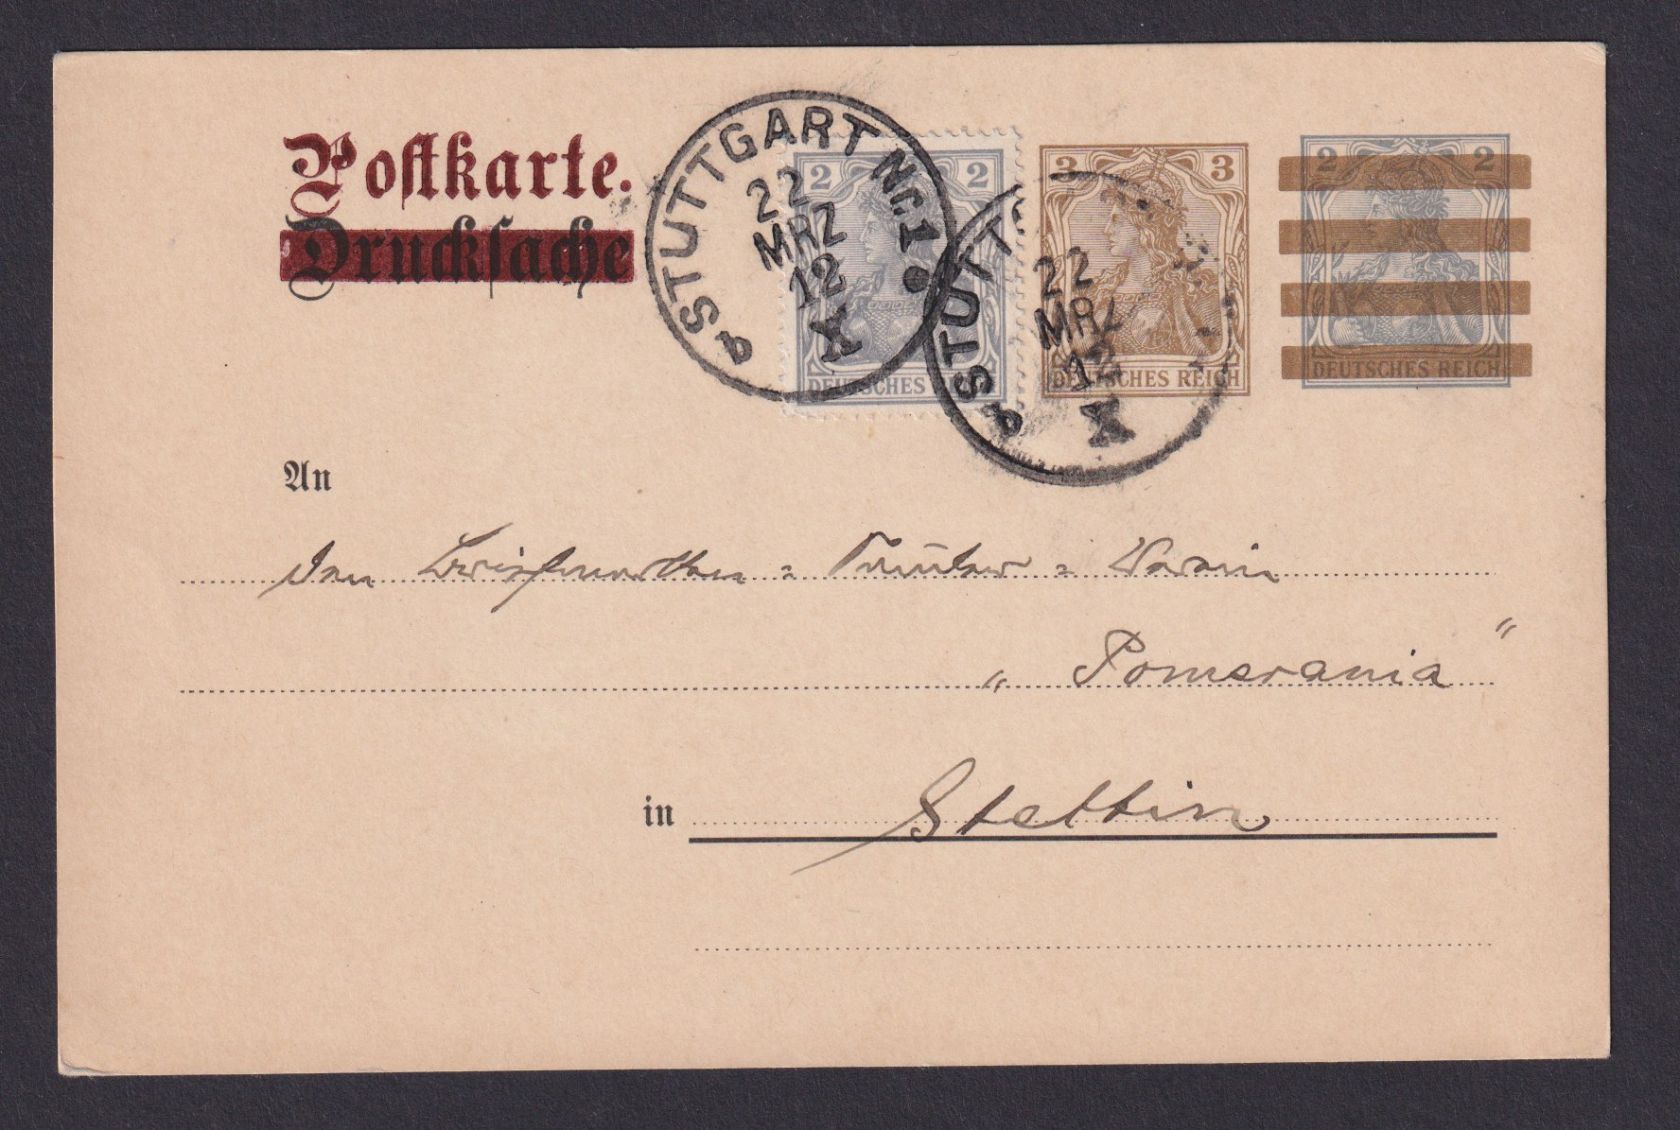 Postkarte.
Drucksache
STUTTGART Nr. 1
22
MRZ
12
X
b
2 2
DEUTSCHES
STUTT
22
MRZ
12
X
b
3 3
DEUTSCHES REICH
2 2
DEUTSCHES REICH
An
Den Briefmarken = Verein
„ Pomerania "
in Stettin